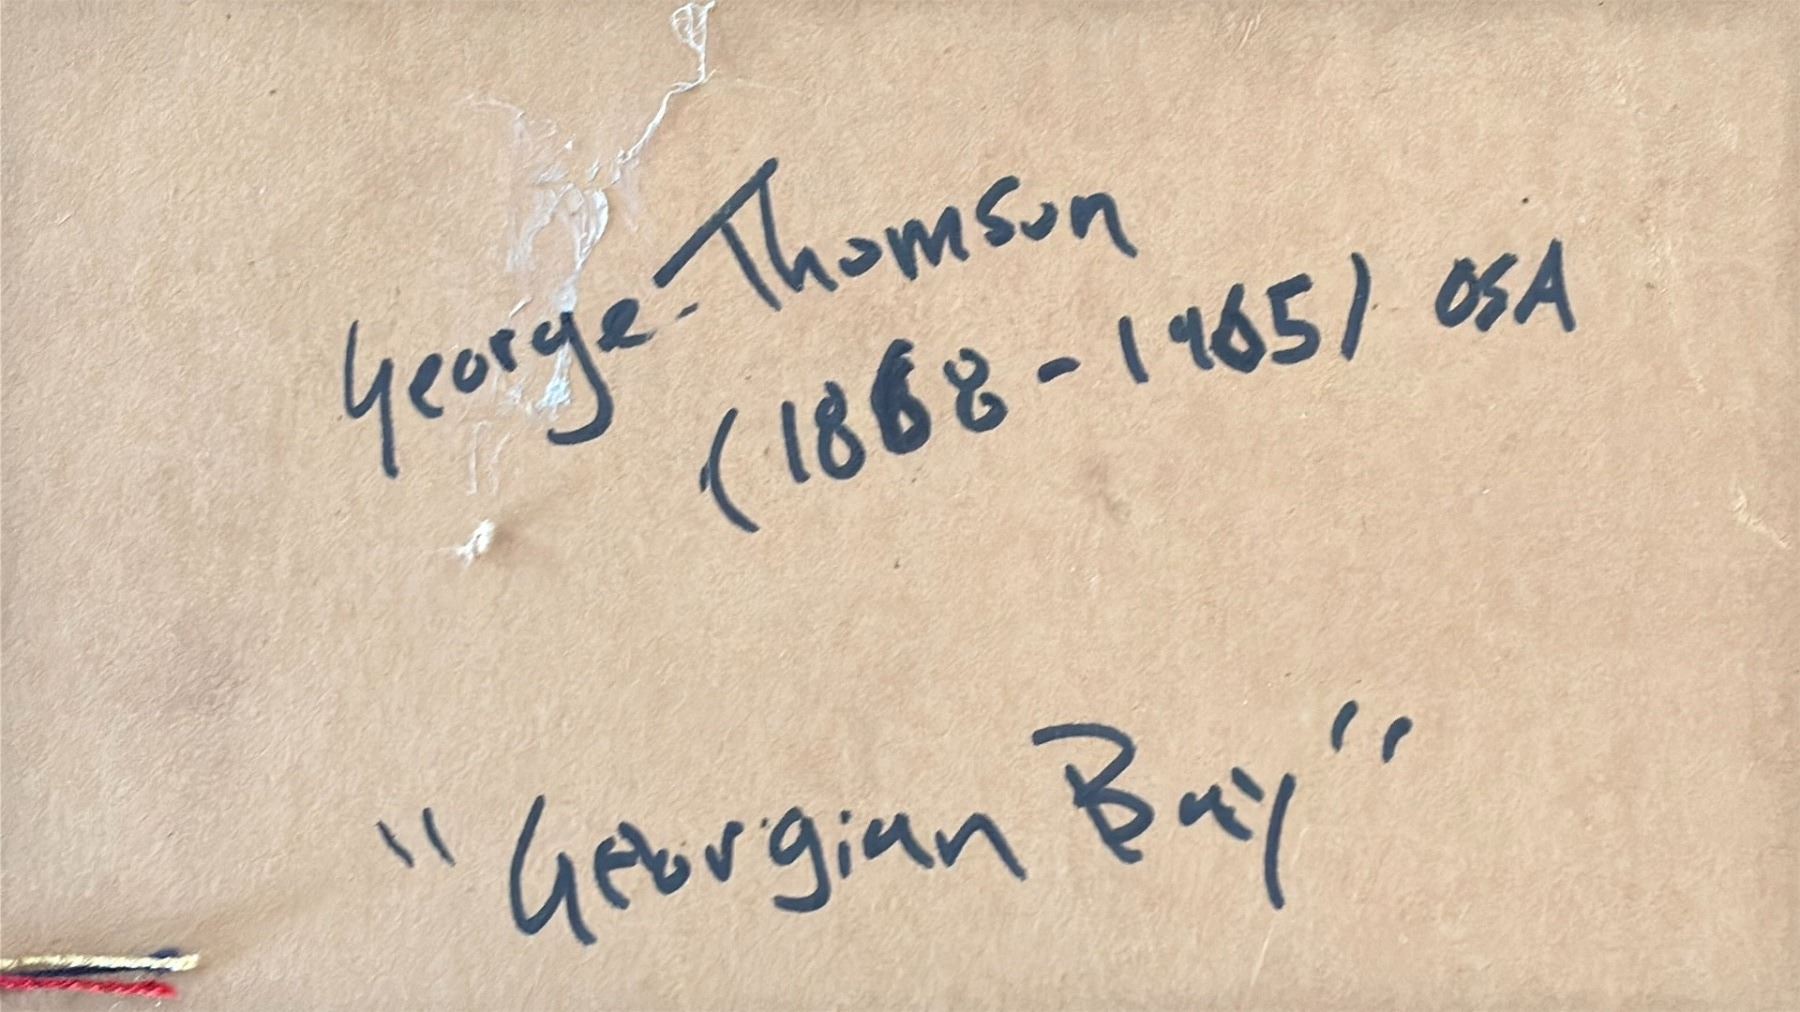 George Thomson
(1868-1965) OSA
"Georgian Bay"